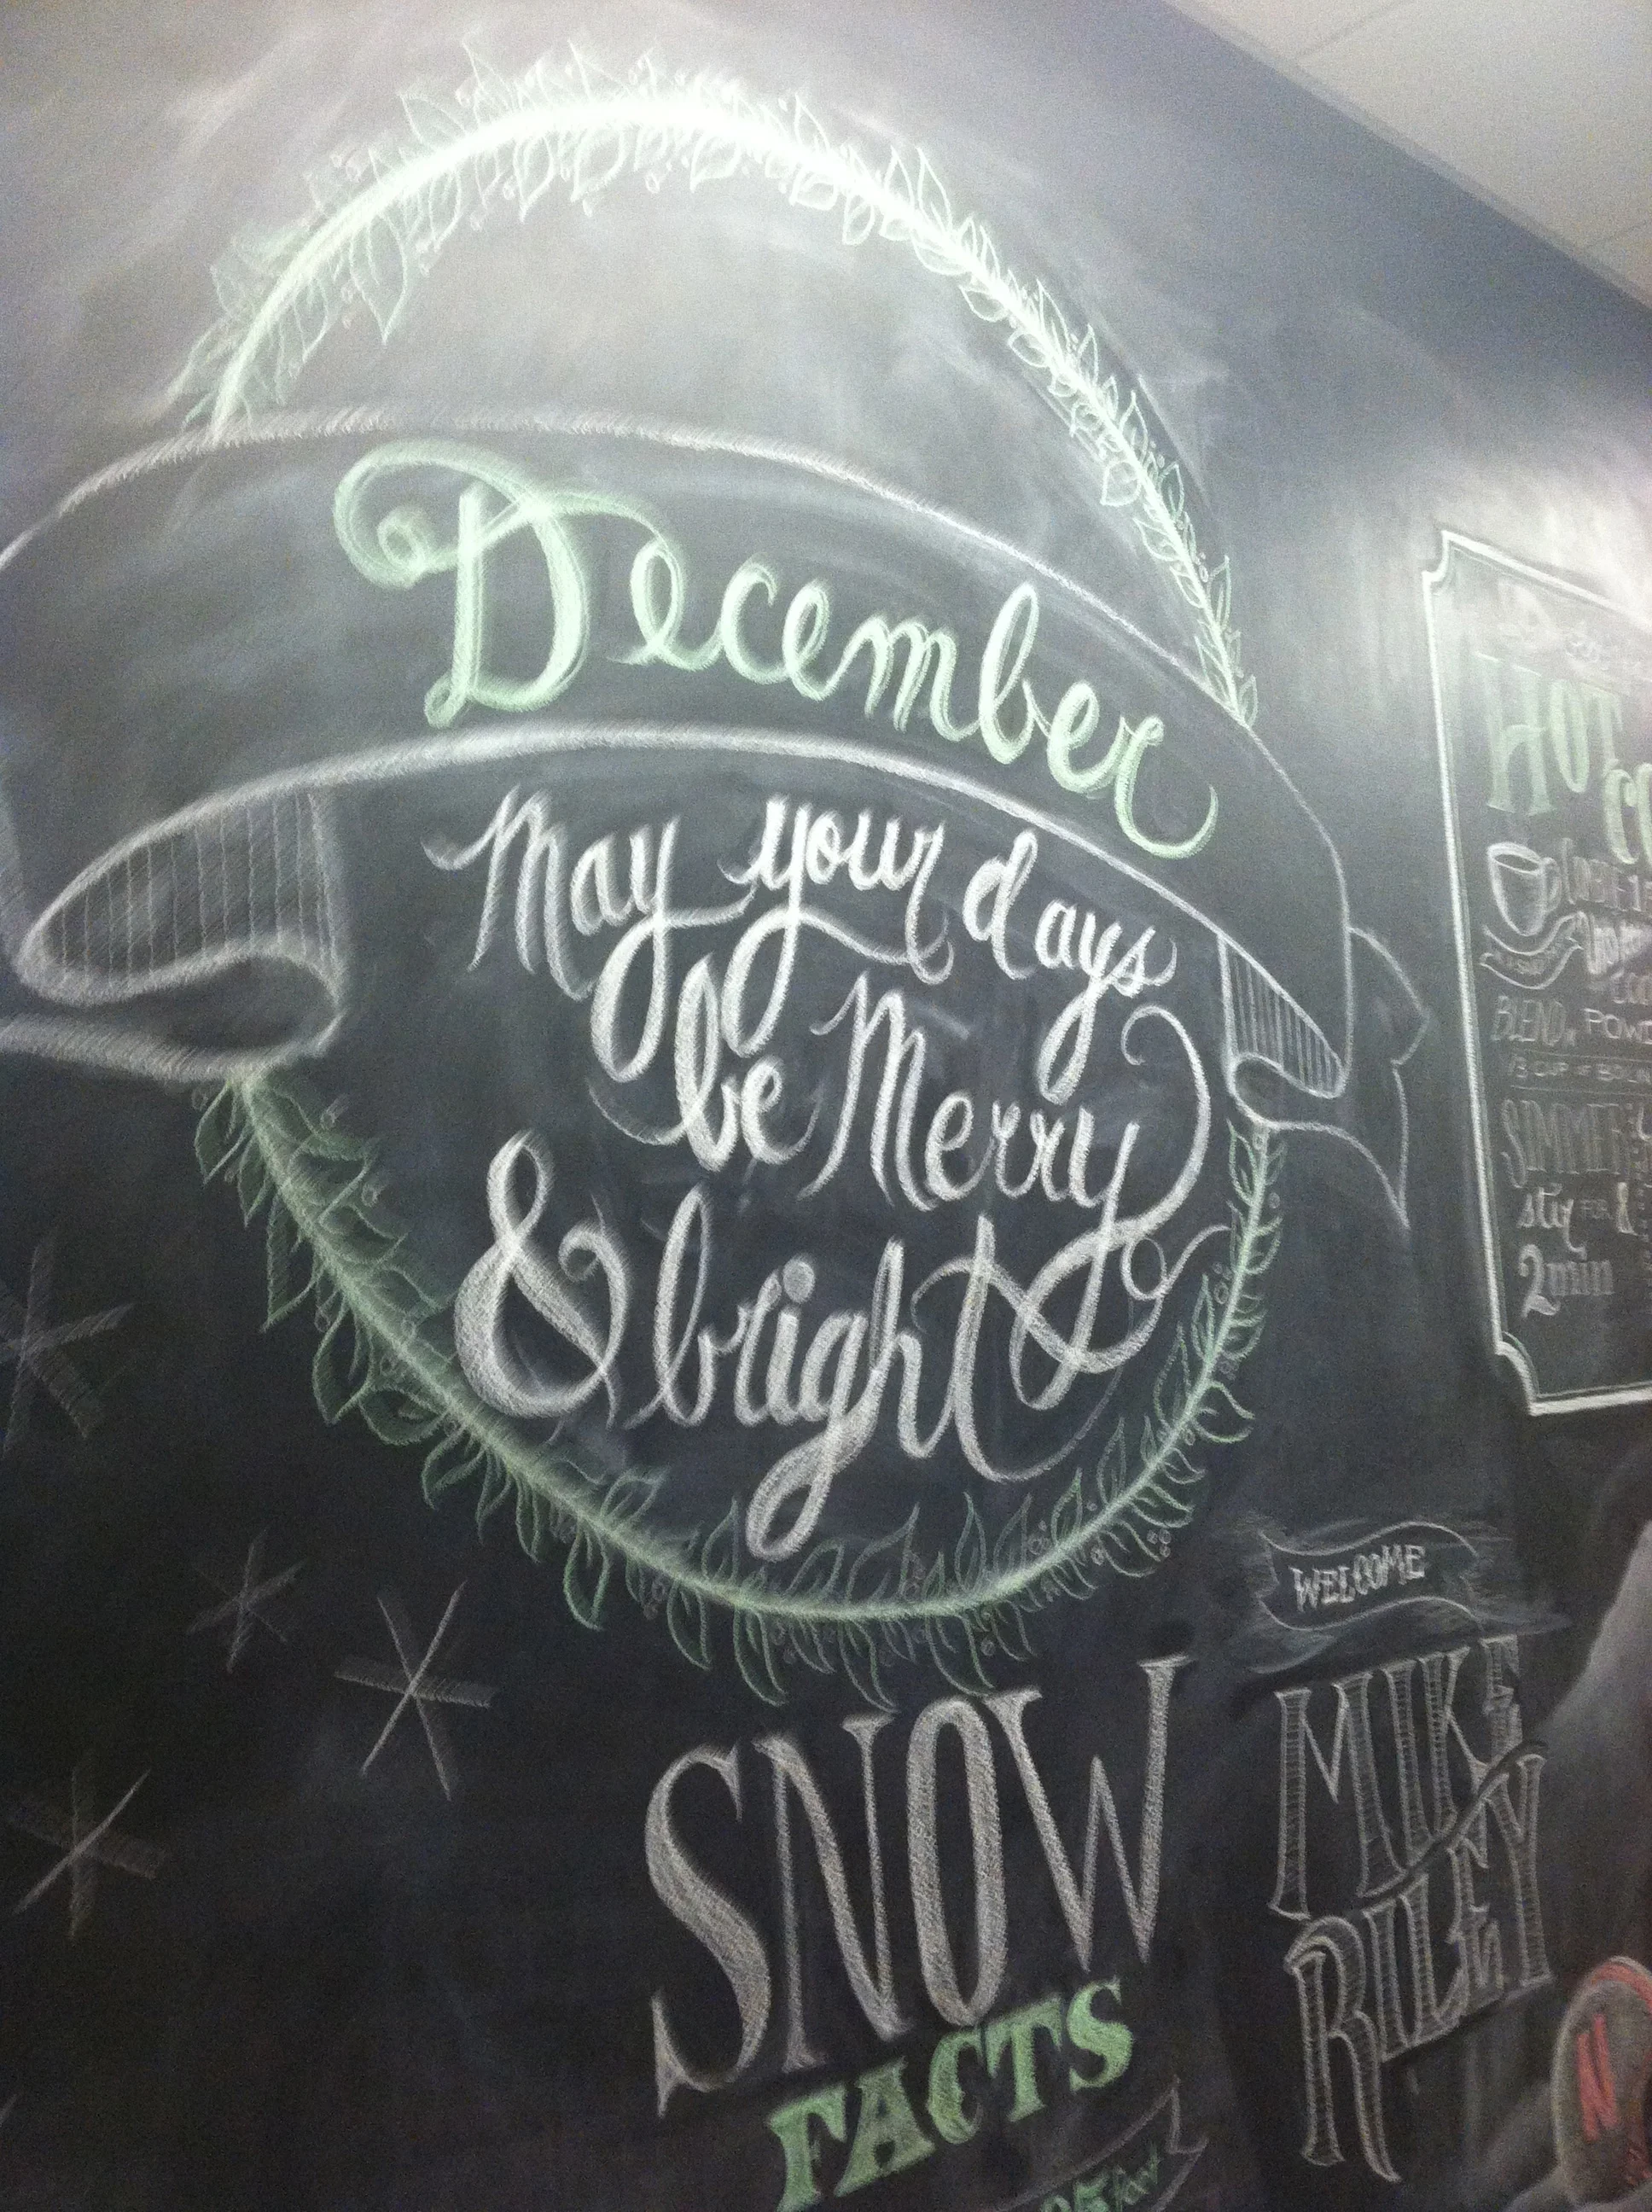 December
May your days
be Merry
& bright
HOT
BLEND
1/3 CUP OF
SIMMER
stir FOR
2 min
WELCOME
MIKE
RILEY
SNOW
FACTS
N